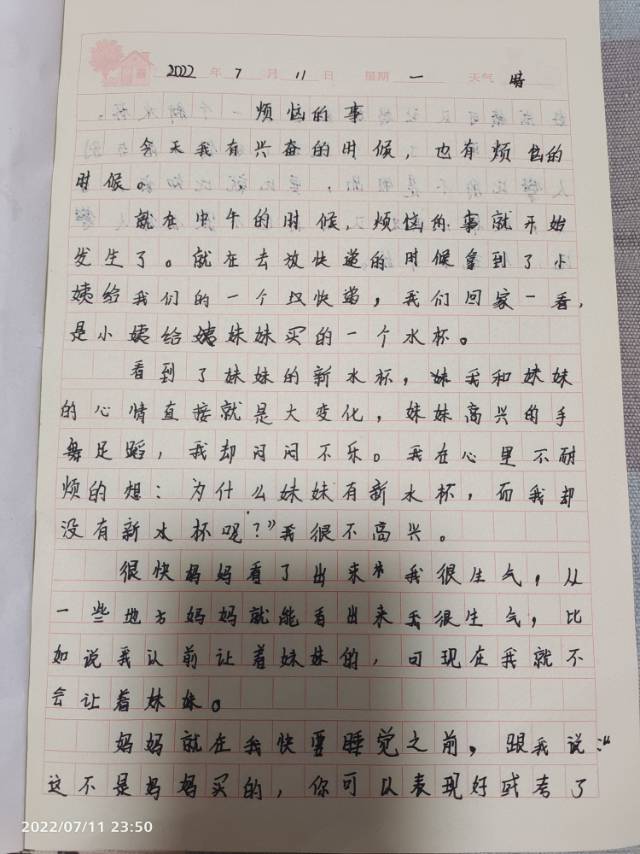 2022 年 7 月 11 日 星期 一 天气 晴
烦恼的事
今天我有兴奋的时候，也有烦恼的
时候。
就在中午的时候，烦恼的事就开始
发生了。就在去放快递的时候拿到了小
姨给我们的一个快递，我们回家一看，
是小姨给妹妹买的一个水杯。
看到了妹妹的新水杯，我和妹妹
的心情直接就是大变化，妹妹高兴的手
舞足蹈，我却闷闷不乐。我在心里不耐
烦的想：为什么妹妹有新水杯，而我却
没有新水杯呢？”我很不高兴。
很快妈妈看了出来我很生气，从
一些地方妈妈就能看出来我很生气，比
如说我以前让着妹妹的，可现在我就不
会让着妹妹。
妈妈就在我快要睡觉之前，跟我说：“
这不是妈妈买的，你可以表现好或考了
2022/07/11 23:50